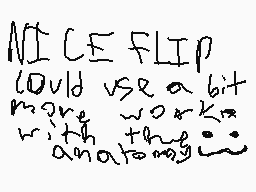 NICE FLIP
could use a bit
more work
with the
anatomy